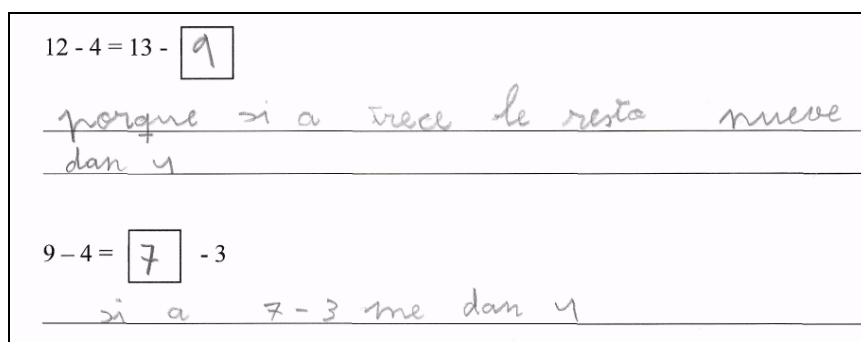 12 - 4 = 13 - 9
porque si a trece le resto nueve
dan 4
9 – 4 = 7 - 3
si a 7 - 3 me dan 4